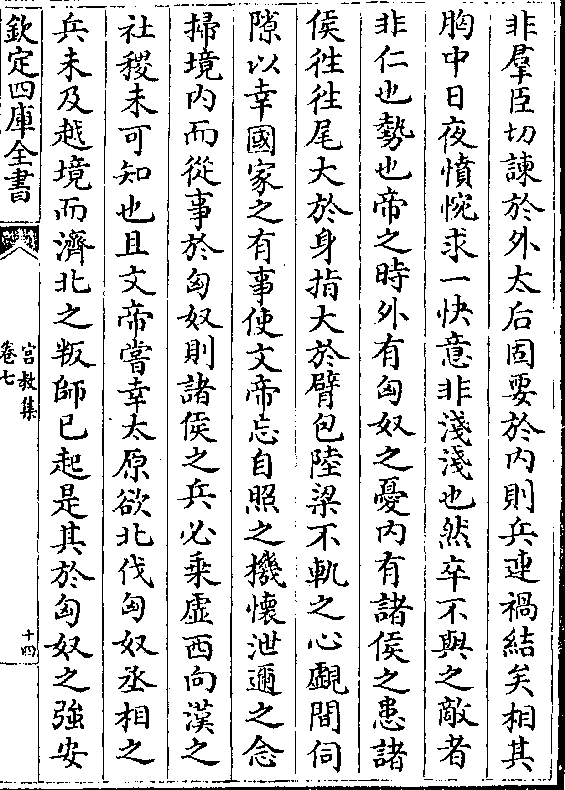 非羣臣切諫於外太后固要於内則兵連禍結矣相其
胸中日夜憤惋求一快意非淺淺也然卒不與之敵者
非仁也勢也帝之時外有匈奴之憂内有諸侯之患諸
侯往往尾大於身指大於臂包陸梁不軌之心覰間伺
隙以幸國家之有事使文帝忘自照之機懷泄邇之念
掃境内而從事於匈奴則諸侯之兵必乗虚西向漢之
社稷未可知也且文帝嘗幸太原欲北伐匈奴丞相之
兵未及越境而濟北之叛師已起是其於匈奴之強安
欽定四庫全書
宫教集
卷七
十四